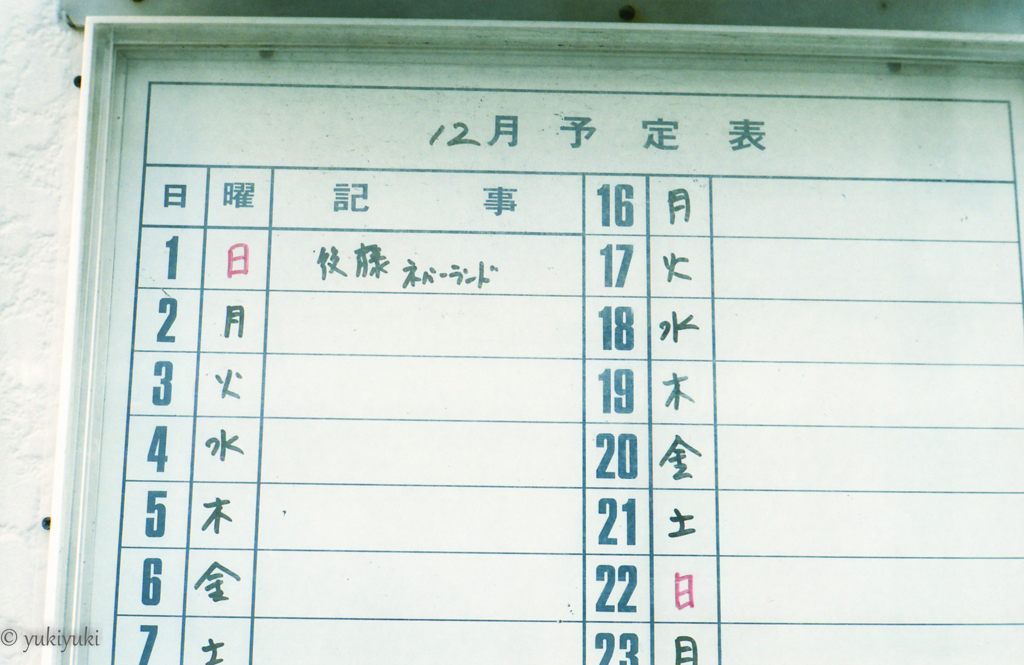 12月 予定表
日 曜 記事
1 日 後藤 ネバーランド
2 月
3 火
4 水
5 木
6 金
7 土
16 月
17 火
18 水
19 木
20 金
21 土
22 日
23 月
© yukiyuki